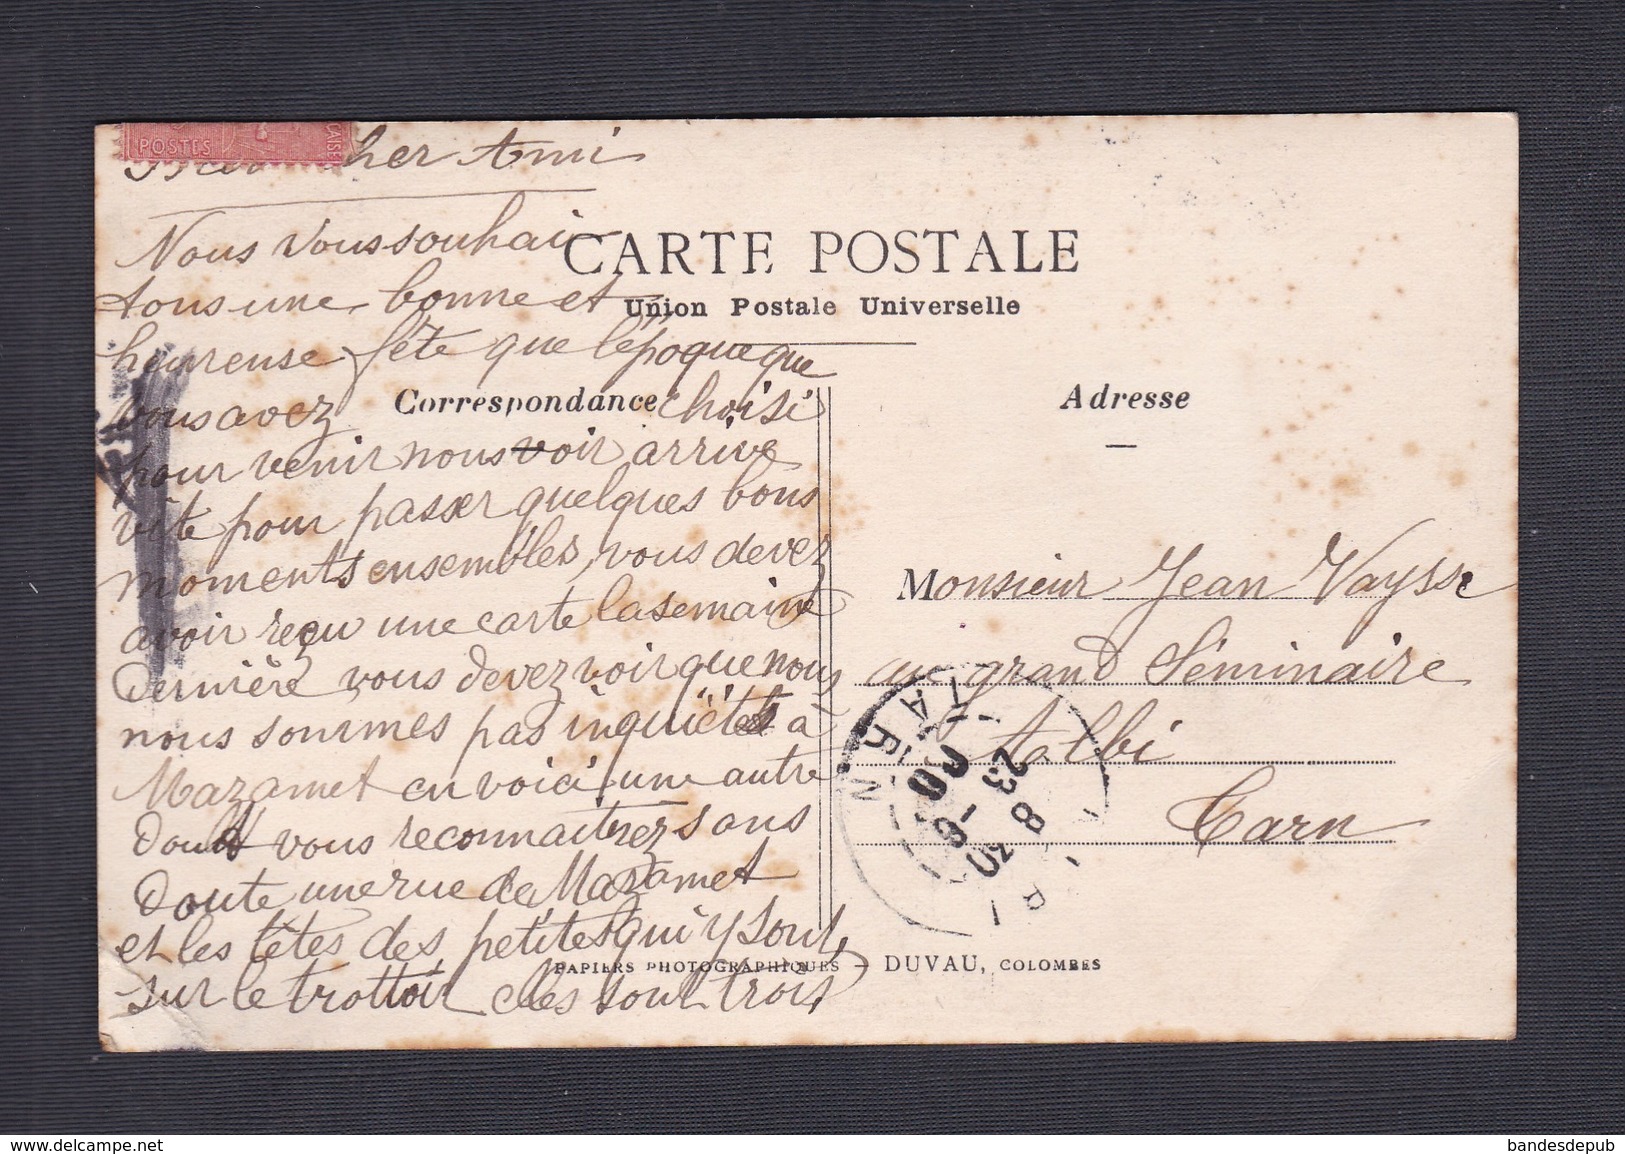 POSTES
CAISE
Cher Ami
Nous Vous souhai
tons une bonne et
heureuse fête que l'époque que
vous avez choisi
pour venir nous voir arrive
vite pour passer quelques bons
moments ensembles, vous devez
avoir reçu une carte la semaine
Dernière vous devez voir que nous
nous sommes pas inquiétés à
Mazamet en voici une autre
Dont vous reconnaitrez sans
Doute une rue de Mazamet
et les têtes des petites qui y sont,
sur le trottoir elles sont trois
CARTE POSTALE
Union Postale Universelle
Correspondance
Adresse
Monsieur Jean Vaysse
au grand Séminaire
Albi
Tarn
TARN
23 8
PAPIERS PHOTOGRAPHIQUES – DUVAU, COLOMBES
www.delcampe.net
bandesdepub